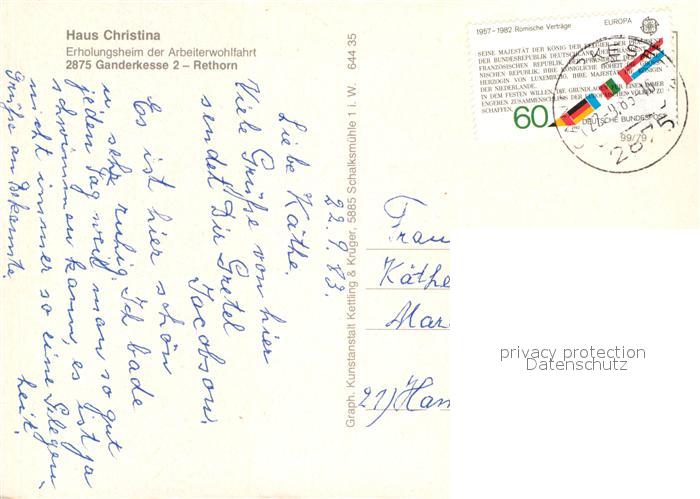 Haus Christina
Erholungsheim der Arbeiterwohlfahrt
2875 Ganderkesee 2 – Rethorn
644 35
Graph. Kunstanstalt Kettling & Krüger, 5885 Schalksmühle 1 i. W.
22.9.83.
Liebe Käthe.
Viele Grüße von hier
sendet Dir Gretel
Jacobson.
Es ist hier schön
u. sehr ruhig. Ich bade
jeden Tag weil man so gut
schwimmen kann, es ist ja
nicht immer so eine Gelegen-
heit.
Grüße an Bekannte.
Frau
Käthe
Mar
21) Ham
1957–1982 Römische Verträge
EUROPA
SEINE MAJESTÄT DER KÖNIG DER BELGIER, DER PRÄSIDENT
DER BUNDESREPUBLIK DEUTSCHLAND, DER PRÄSIDENT DER
FRANZÖSISCHEN REPUBLIK, DER PRÄSIDENT DER
NISCHEN REPUBLIK, IHRE KÖNIGLICHE HOHEIT DIE GROSS-
HERZOGIN VON LUXEMBURG, IHRE MAJESTÄT DIE KÖNIGIN
DER NIEDERLANDE,
IN DEM FESTEN WILLEN, DIE GRUNDLAGEN FÜR EINEN IMMER
ENGEREN ZUSAMMENSCHLUSS DER EUROPÄISCHEN VÖLKER ZU
SCHAFFEN,
60
DEUTSCHE BUNDESPOST
99/79
2875
privacy protection
Datenschutz